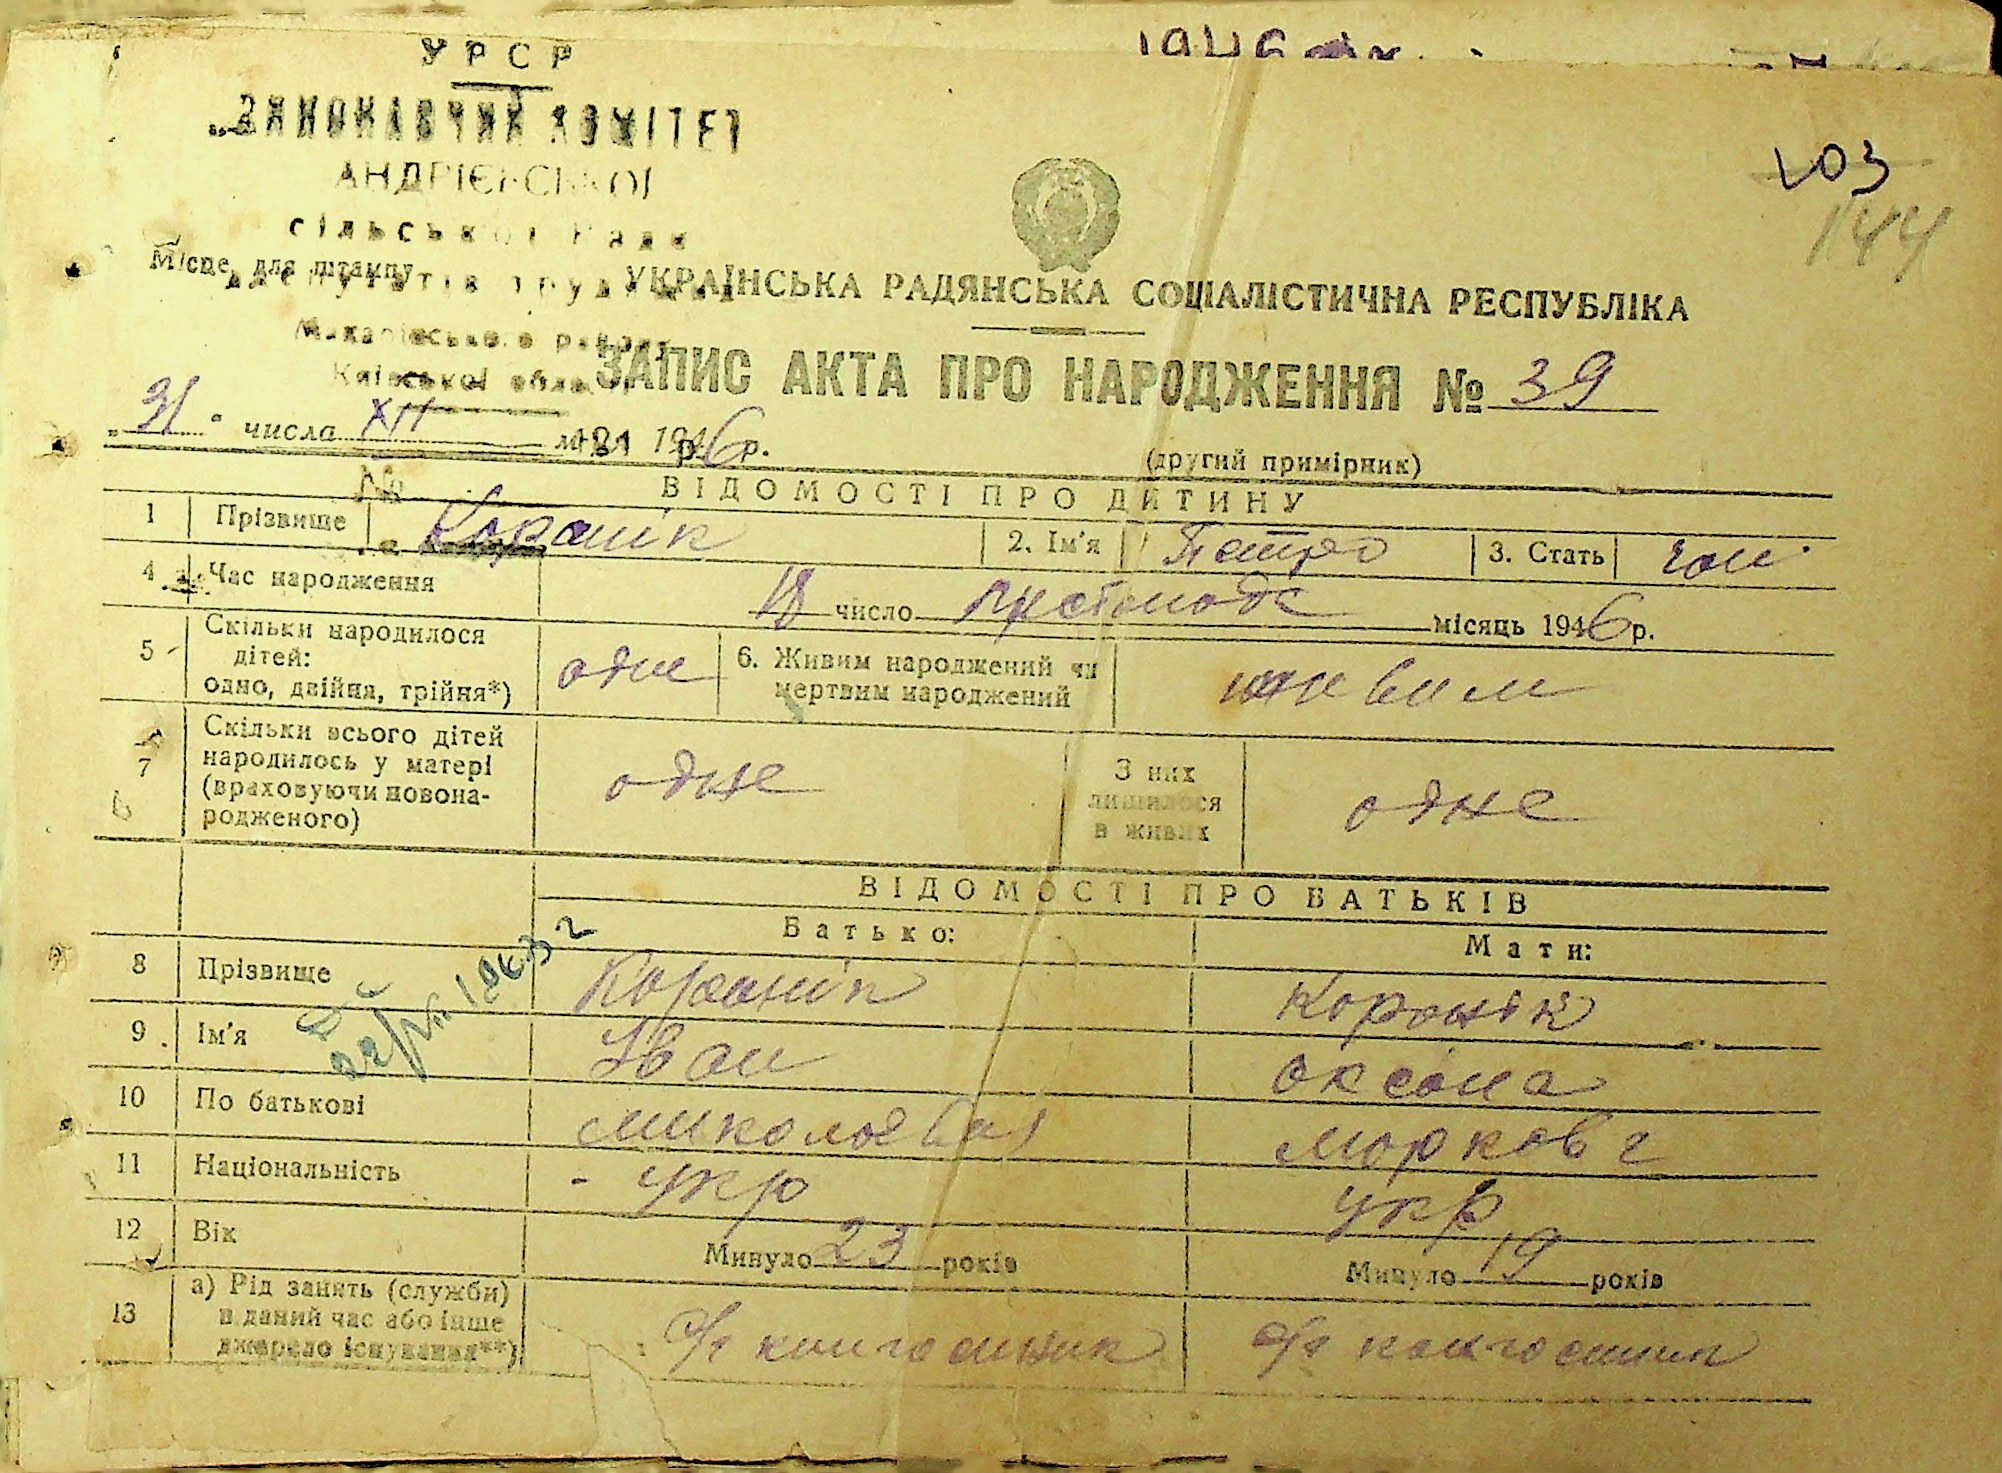 УРСР
ВИКОНАВЧИЙ КОМІТЕТ
АНДРІЄВСЬКОЇ
сільської Ради
Місце для штампу
депутатів трудящих
Макарівського району
Київської області
103
144
УКРАЇНСЬКА РАДЯНСЬКА СОЦІАЛІСТИЧНА РЕСПУБЛІКА
ЗАПИС АКТА ПРО НАРОДЖЕННЯ № 39
„31" числа XII м-ця 1946 р.
(другий примірник)
№
ВІДОМОСТІ ПРО ДИТИНУ
1 Прізвище Коранік 2. Ім'я Петро 3. Стать чол.
4 Час народження 18 число листопада місяць 1946 р.
5 Скільки народилося
дітей:
одно, двійня, трійня*) одне
6. Живим народжений чи
мертвим народжений живим
7 Скільки всього дітей
народилось у матері
(враховуючи новона-
родженого) одне
З них
лишилося
в живих одне
ВІДОМОСТІ ПРО БАТЬКІВ
Батько: Мати:
8 Прізвище Коранік Коранік
9 Ім'я Іван Оксана
10 По батькові Миколаєвич Марковна
11 Національність укр укр
12 Вік Минуло 23 років Минуло 19 років
13 а) Рід занять (служби)
в даний час або інше
джерело існування**)
с/г колгоспник с/г колгоспник